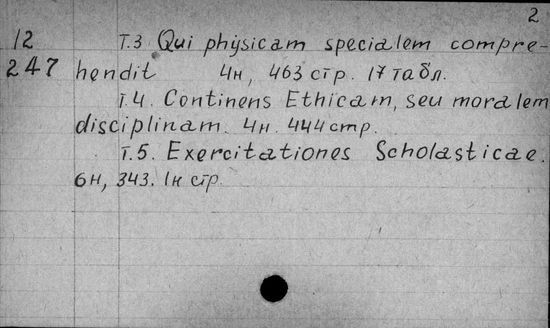 2
12 Т.3 Qui physicam specialem compre-
247 hendit 4н, 463 стр. 17 табл.
т.4. Continens Ethicam, seu moralem
disciplinam. 4н. 444 стр.
т.5. Exercitationes Scholasticae.
6н, 343. 1н стр.